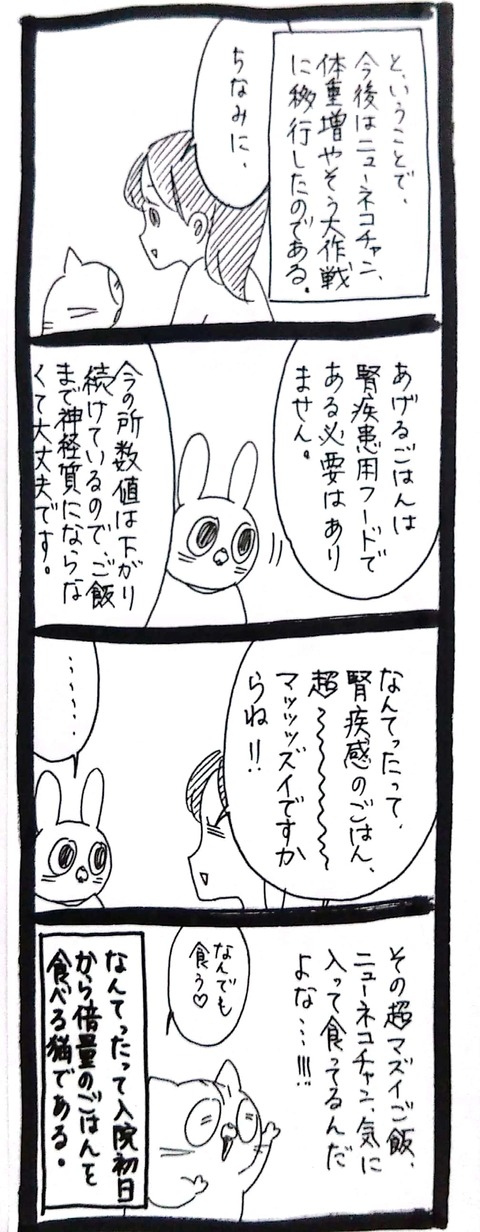 と、いうことで、
今後はニューネコチャン、
体重増やそう大作戦
に移行したのである。
ちなみに、
あげるごはんは
腎疾患用フードで
ある必要はあり
ません。
今の所数値は下がり
続けているので、ご飯
まで神経質にならな
くて大丈夫です。
なんてったって、
腎疾感のごはん、
超〜〜〜〜
マッッッズイですか
らね!!
・・・・・・
その超マズイご飯、
ニューネコチャン、気に
入って食ってるんだ
よな…!!!
なんでも
食う♡
なんてったって入院初日
から倍量のごはんを
食べる猫である。